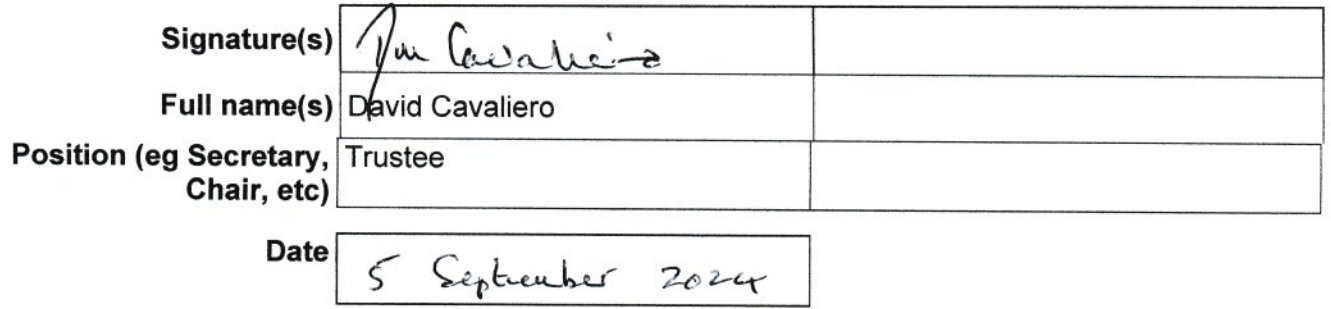 Signature(s) Cavaliero
Full name(s) David Cavaliero
Position (eg Secretary, Trustee
Chair, etc)
Date 5 September 2024